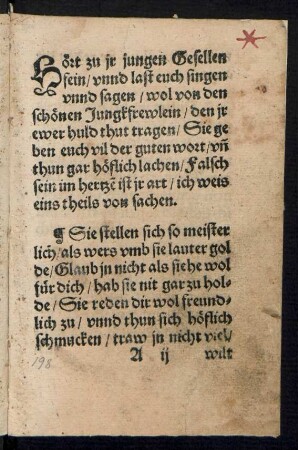 Hört zu jr jungen Gesellen
fein / vnnd laſt euch ſingen
vnnd ſagen / wol von den
ſchönen Jungkfrewlein / den jr
ewer huld thut tragen / Sie ge
ben euch vil der guten wort / vñ
thun gar höflich lachen / Falſch
ſein im hertzẽ iſt jr art / ich weis
eins theils von ſachen.
¶ Sie ſtellen ſich ſo meiſter
lich / als wers vmb ſie lauter gol
de / Glaub jn nicht als ſiehe wol
für dich / hab ſie nit gar zu hol-
de / Sie reden dir wol freund-
lich zu / vnnd thun ſich höflich
ſchmucken / traw jn nicht viel /
A ij wilt
198